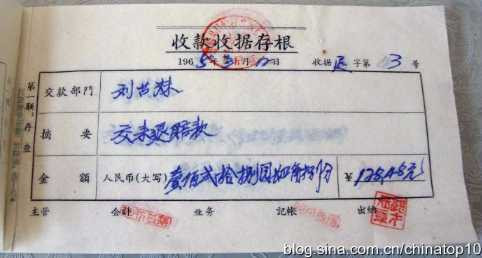 收款收据存根
1965年3月12日 收据 字第 13 号
第一联：存查
交款部门 刘
摘要 交来退赔款
金额 人民币(大写) 壹佰贰拾捌圆肆角捌分 ￥128.48元
主管 会计 业务 记帐 出纳
blog.sina.com.cn/chinatop10